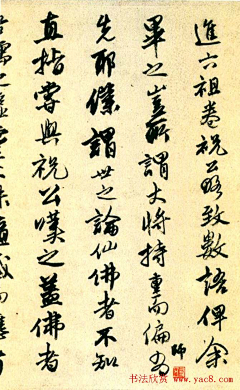 進六祖卷祝公略致數語俾余
畢之豈所謂大將持重而偏
先耶僕謂世之論仙佛者不知
直指嘗與祝公嘆之蓋佛者
師
书法欣赏
www.yac8.com